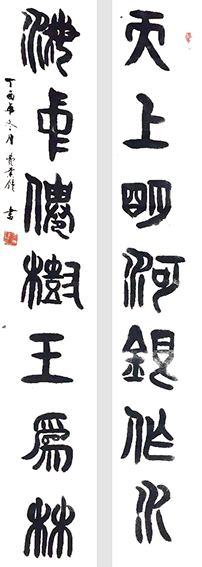 天上明河銀作水
海中僊樹玉爲林
丁酉年冬月書